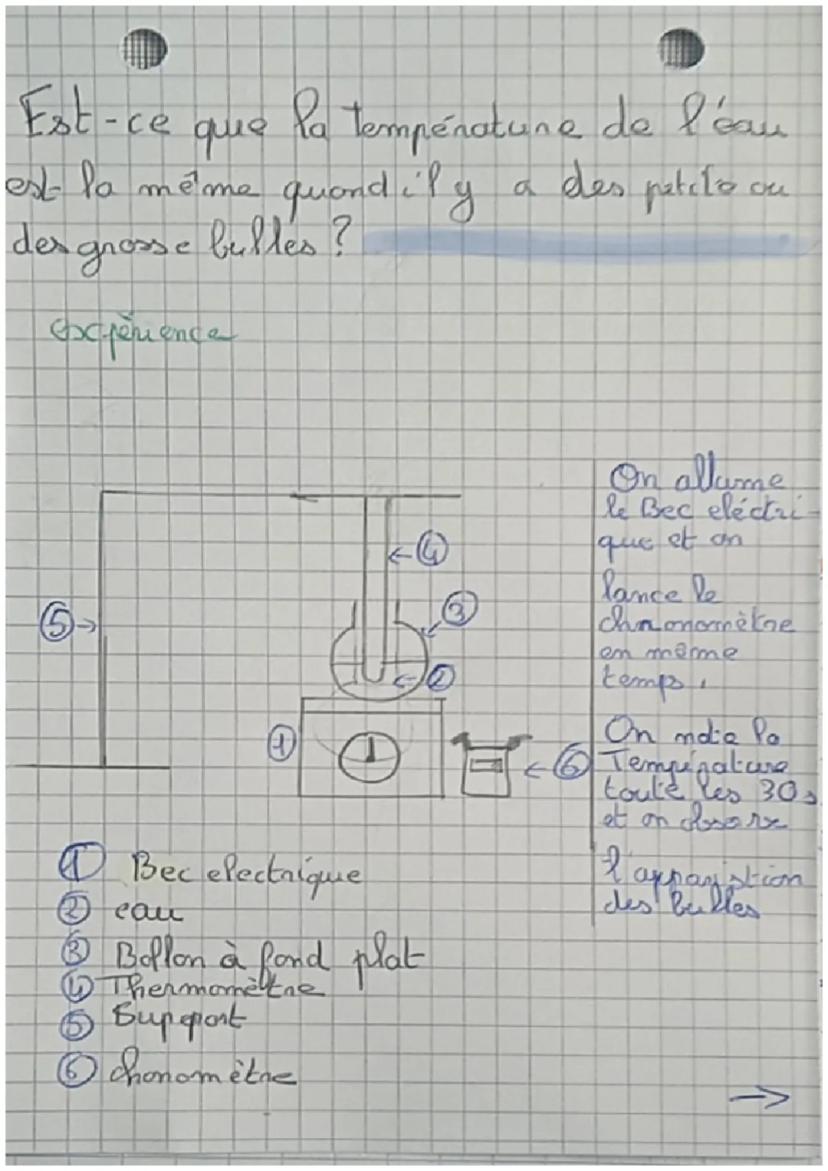 Est-ce que la température de l'eau
est la même quand il y a des petite ou
des grosse bulles ?
expérience
On allume
le Bec eléctri-
que et on
lance le
chronomètre
en même
temps.
On note la
Température
toute les 30s
et on observe
l'apparition
des bulles
④
③
⑤
②
①
⑥
① Bec electrique
② eau
③ Ballon à fond plat
④ Thermomètre
⑤ Support
⑥ chonomètre